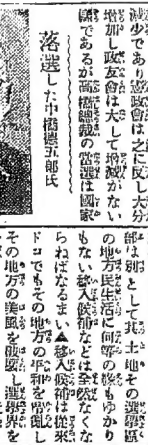 減少であり憲政會は之に反し大分
增加し政友會は大して增減がない
樣であるが高橋總裁の當選は國家
落選した中橋德五郎氏
部は別として其土地その選擧區
の地方民生活に何等の緣もゆかり
もない移入候補などは全然なくな
らねばなるまい▲移入候補は從來
ドコでもその地方の平和を攪亂し
その地方の美風を破壞し選擧界を